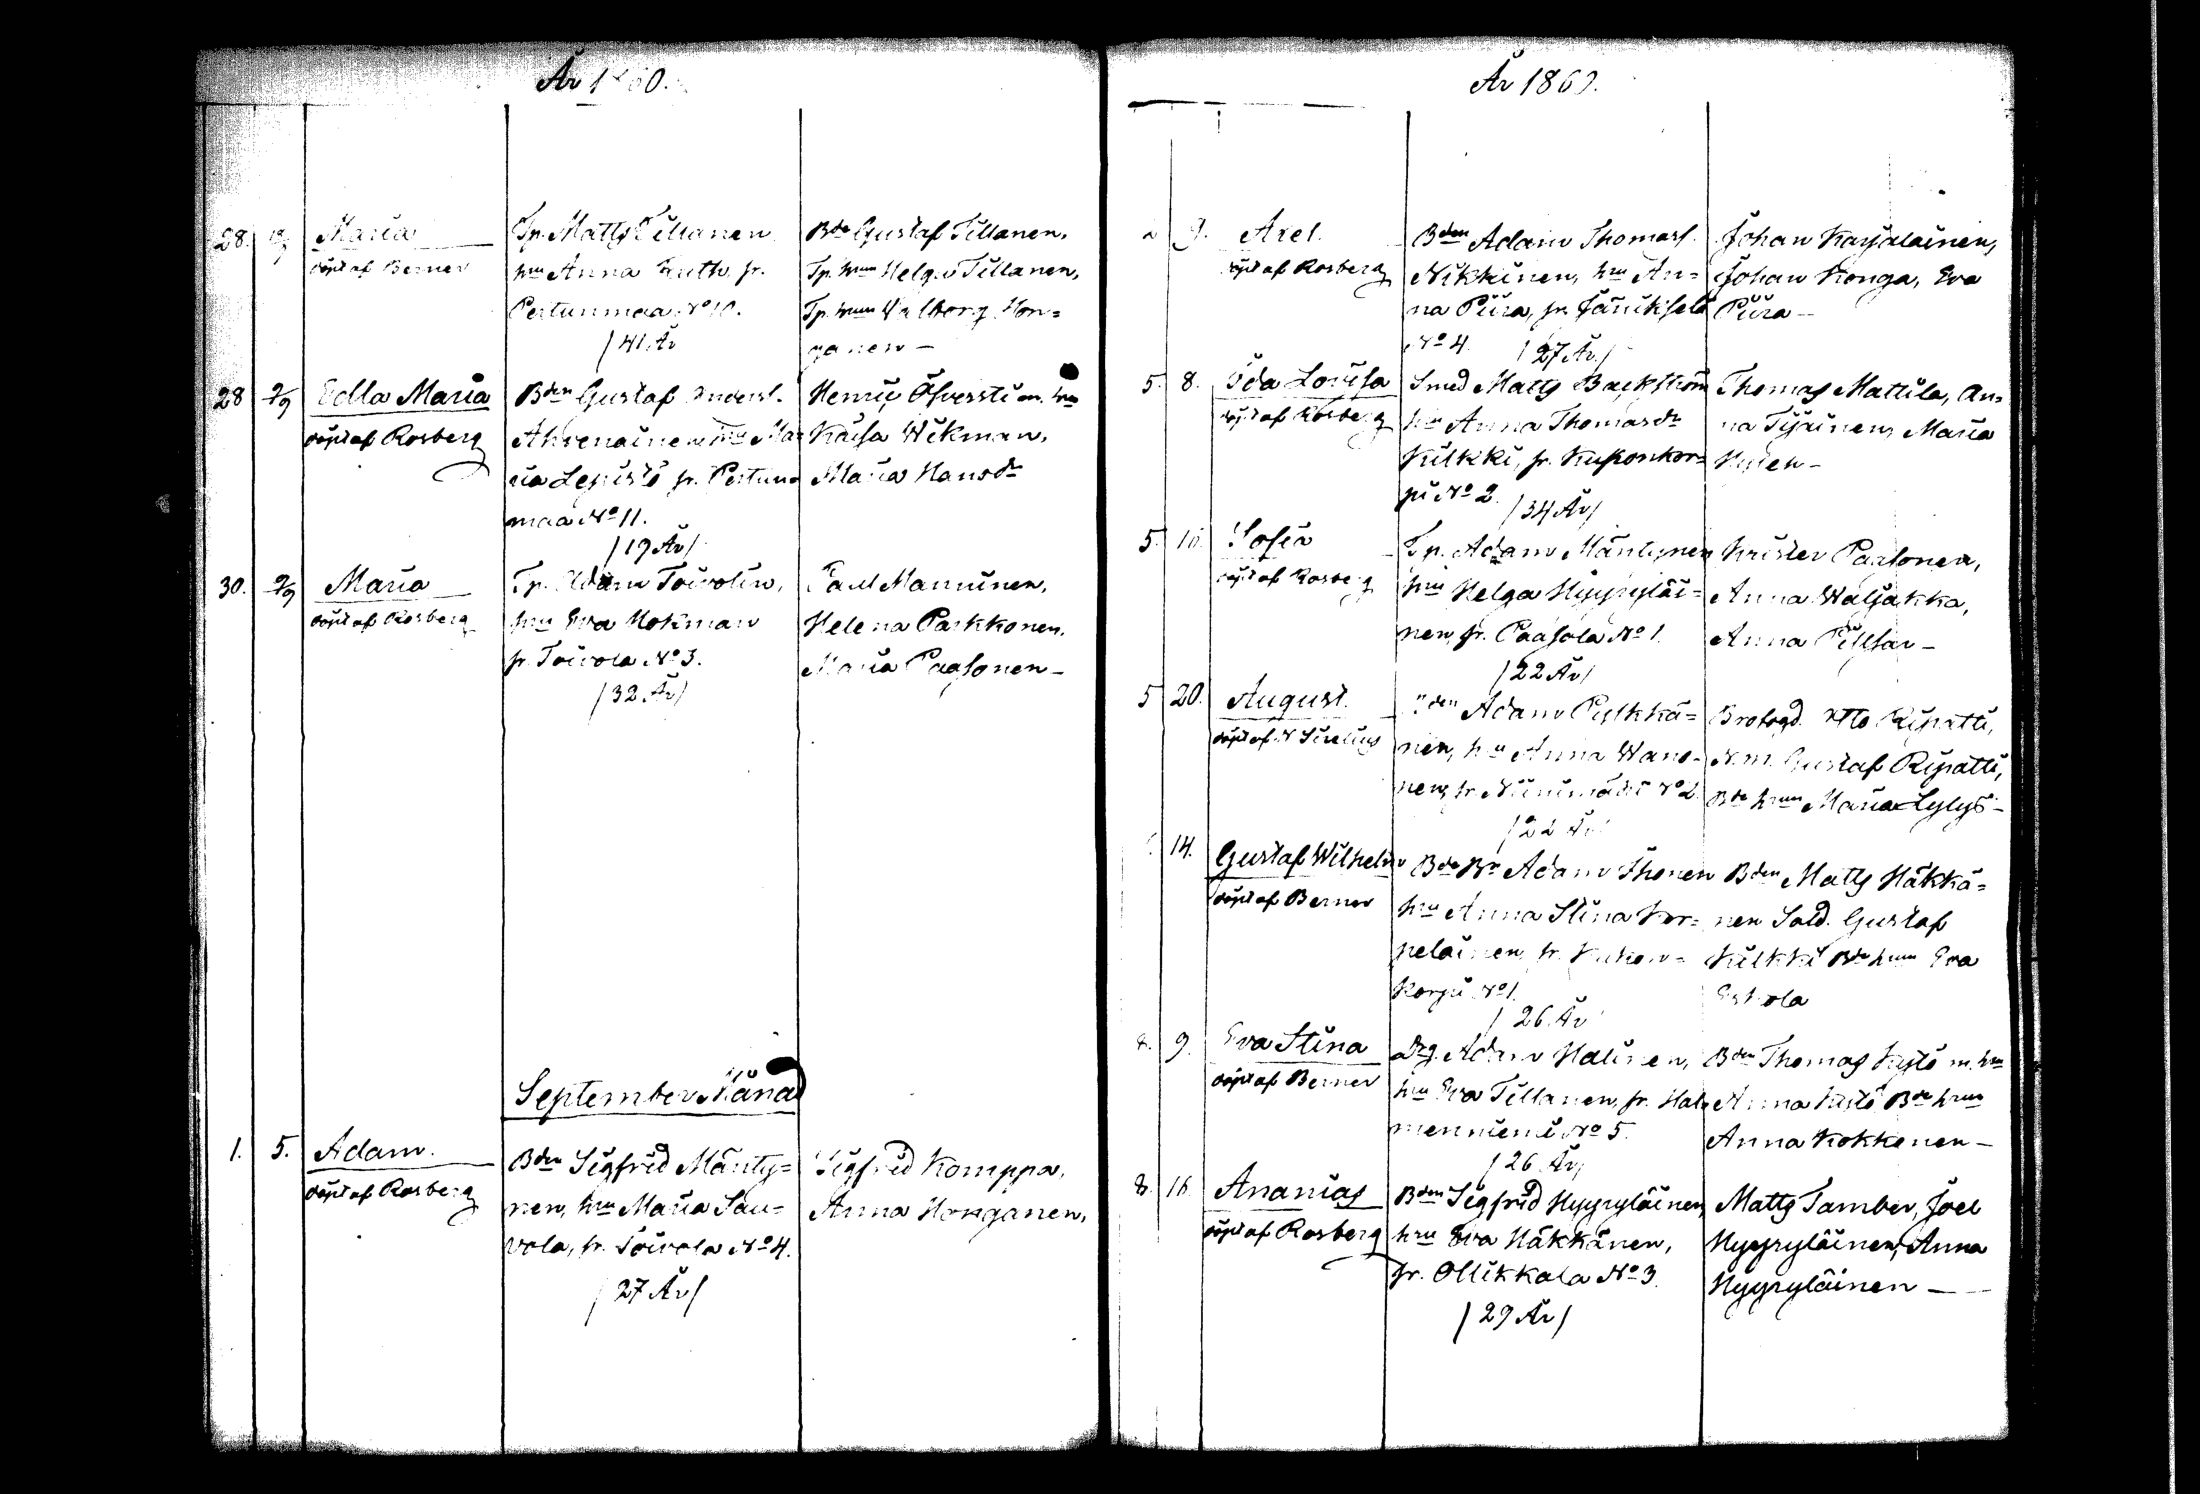 År 1860.
28. Maria
döpt af Berner
Tp. Matts Tillanen
hru Anna Luth. fr.
Pertunmaa No 10.
/41 År
Bde Gustaf Tillanen,
Tp. hrun Helga Tillanen,
Tp. hrun Walborg Hon=
ganen —
28 2/9 Edla Maria
döpt af Rosberg
Bden Gustaf Andersf.
Ahvenainen hru Ma=
ria Lepistö fr. Pertun=
maa No 11.
/19 År/
Henric Öfverström. hru
Kaisa Wikman,
Maria Hansdr
30. 2/9 Maria
döpt af Rosberg
Tp. Adam Toivolin,
hru Eva Hokman
fr. Toivola No 3.
/32 År/
Paul Manninen,
Helena Parkkonen.
Maria Paasonen —
September Månad
1. 5. Adam.
döpt af Rosberg
Bden Sigfrid Mänty=
nen, hru Maria Sau=
vola, fr. Toivola No 4.
/27 År/
Sigfrid Komppa,
Anna Honganen,
År 1860.
2 9. Axel.
döpt af Rosberg
Bden Adam Thomasf.
Nikkinen, hru An=
na Piira, fr. Jänikselä
No 4. /27 År/
Johan Karjalainen,
Johan Konga, Eva
Piira —
5. 8. Ida Lovisa
döpt af Rosberg
Smed Matts Backström
hru Anna Thomasdr
Kilkki, fr. Kuhonkor=
pi No 2. /34 År/
Thomas Mattila, An=
na Tijainen, Maria
Hylen —
5. Sofia
döpt af Rosberg
Tp. Adam Mäntynen
hru Helga Hyyryläi=
nen, fr. Paasola No 1.
/22 År/
Krister Paasonen,
Anna Waljakka,
Anna Pillsar —
5 20. August.
döpt af N Sirelius
Bden Adam Pylkkä=
nen, hru Anna Wano=
nen, fr. Niinimäki No 2.
/22 År/
Brofogd. Otto Ripatti,
N.m. Gustaf Ripatti,
Bde hrun Maria Lylys —
14. Gustaf Wilhelm
döpt af Berner
Bde Br Adam Ihonen
hru Anna Stina Kor=
pelainen fr. Kuhon=
korpi No 1.
/26 År
Bden Matts Häkkä=
nen Sold. Gustaf
Kilkki Bde hrun Eva
Eskola
8. 9. Eva Stina
döpt af Berner
Adam Halinen,
hru Eva Tillanen, fr. Hal=
menniemi No 5.
/26 År/
Bden Thomas Kystö m. hru
Anna Kystö Bde hrun
Anna Kokkonen —
8. 16. Ananias
döpt af Rosberg
Bden Sigfrid Hyyryläinen,
hru Eva Häkkänen,
fr. Ollikkala No 3.
/29 År/
Matts Tamber, Joel
Hyyryläinen, Anna
Hyyryläinen —